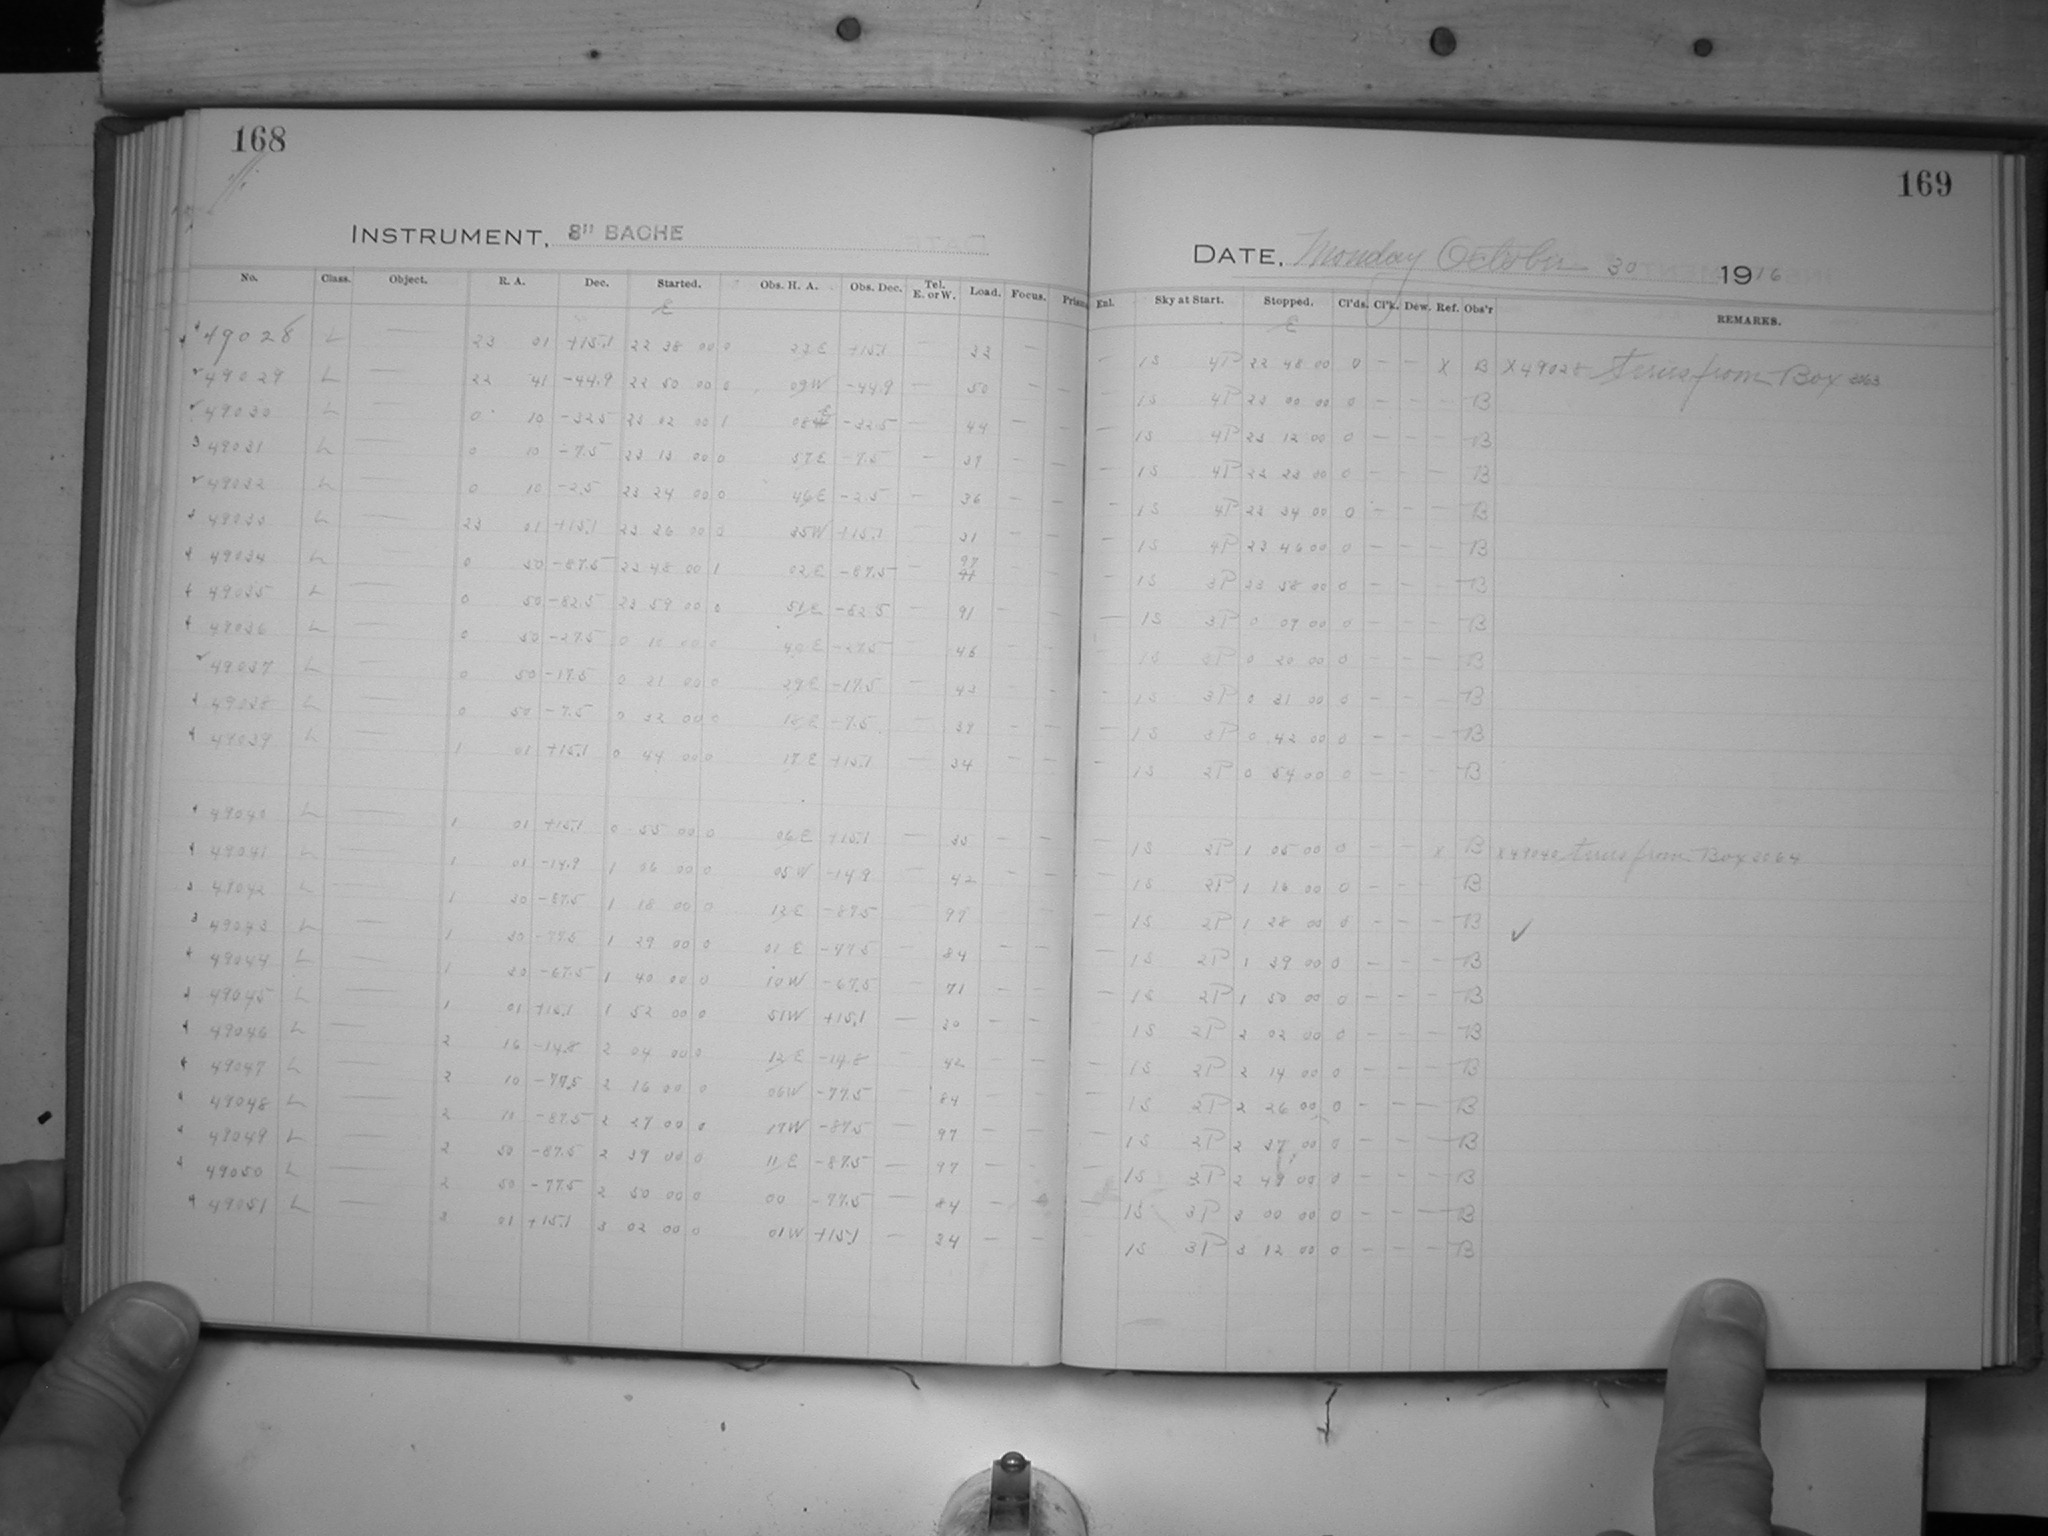 168
INSTRUMENT, 8" BACHE
No. Class. Object. R. A. Dec. Started. Obs. H. A. Obs. Dec. Tel. E. or W. Load. Focus. Prism.
E
49028 L — 23 01 +15.1 22 38 00 0 23 E +15.1 — 33 —
49029 L — 22 41 -44.9 22 50 00 0 09 W -44.9 — 50 — —
49030 L — 0 10 -32.5 23 02 00 1 08 E -32.5 — 44 — —
49031 L — 0 10 -7.5 23 13 00 0 57 E -7.5 — 39 — —
49032 L — 0 10 -2.5 23 24 00 0 46 E -2.5 — 36 — —
49033 L — 23 01 +15.1 23 36 00 0 35 W +15.1 — 31 — —
49034 L — 0 50 -87.5 23 48 00 1 02 E -87.5 — 97 — —
49035 L — 0 50 -82.5 23 59 00 0 51 E -82.5 — 91 — —
49036 L — 0 50 -27.5 0 10 00 0 40 E -27.5 — 46 — —
49037 L — 0 50 -17.5 0 21 00 0 29 E -17.5 — 43 — —
49038 L — 0 50 -7.5 0 32 00 0 18 E -7.5 — 39 — —
49039 L — 1 01 +15.1 0 44 00 0 17 E +15.1 — 34 — —
49040 L — 1 01 +15.1 0 55 00 0 06 E +15.1 — 35 — —
49041 L — 1 01 -14.9 1 06 00 0 05 W -14.9 — 42 — —
49042 L — 1 30 -87.5 1 18 00 0 12 E -87.5 — 97 — —
49043 L — 1 30 -77.5 1 29 00 0 01 E -77.5 — 84 — —
49044 L — 1 30 -67.5 1 40 00 0 10 W -67.5 — 71 — —
49045 L — 1 01 +15.1 1 52 00 0 51 W +15.1 — 30 — —
49046 L — 2 16 -14.8 2 04 00 0 12 E -14.8 — 42 — —
49047 L — 2 10 -77.5 2 16 00 0 06 W -77.5 — 84 — —
49048 L — 2 10 -87.5 2 27 00 0 17 W -87.5 — 97 — —
49049 L — 2 50 -87.5 2 39 00 0 11 E -87.5 — 97 — —
49050 L — 2 50 -77.5 2 50 00 0 00 -77.5 — 84 — —
49051 L — 3 01 +15.1 3 02 00 0 01 W +15.1 — 34 — —
169
DATE, Monday October 30 1916
Enl. Sky at Start. Stopped. Cl'ds. Cl'k. Dew. Ref. Obs'r REMARKS.
E
— 1S 4P 22 48 00 0 — — X B X 49028 series from Box 2063
— 1S 4P 23 00 00 0 — — — B
— 1S 4P 23 12 00 0 — — — B
— 1S 4P 23 23 00 0 — — — B
— 1S 4P 23 34 00 0 — — — B
— 1S 4P 23 46 00 0 — — — B
— 1S 3P 23 58 00 0 — — — B
— 1S 3P 0 09 00 0 — — — B
— 1S 3P 0 20 00 0 — — — B
— 1S 3P 0 31 00 0 — — — B
— 1S 3P 0 42 00 0 — — — B
— 1S 2P 0 54 00 0 — — — B
— 1S 2P 1 05 00 0 — — X B X 49040 series from Box 2064
— 1S 2P 1 16 00 0 — — — B
— 1S 2P 1 28 00 0 — — — B ✓
— 1S 2P 1 39 00 0 — — — B
— 1S 2P 1 50 00 0 — — — B
— 1S 2P 2 02 00 0 — — — B
— 1S 2P 2 14 00 0 — — — B
— 1S 2P 2 26 00 0 — — — B
— 1S 2P 2 37 00 0 — — — B
— 1S 3P 2 49 00 0 — — — B
— 1S 3P 3 00 00 0 — — — B
— 1S 3P 3 12 00 0 — — — B